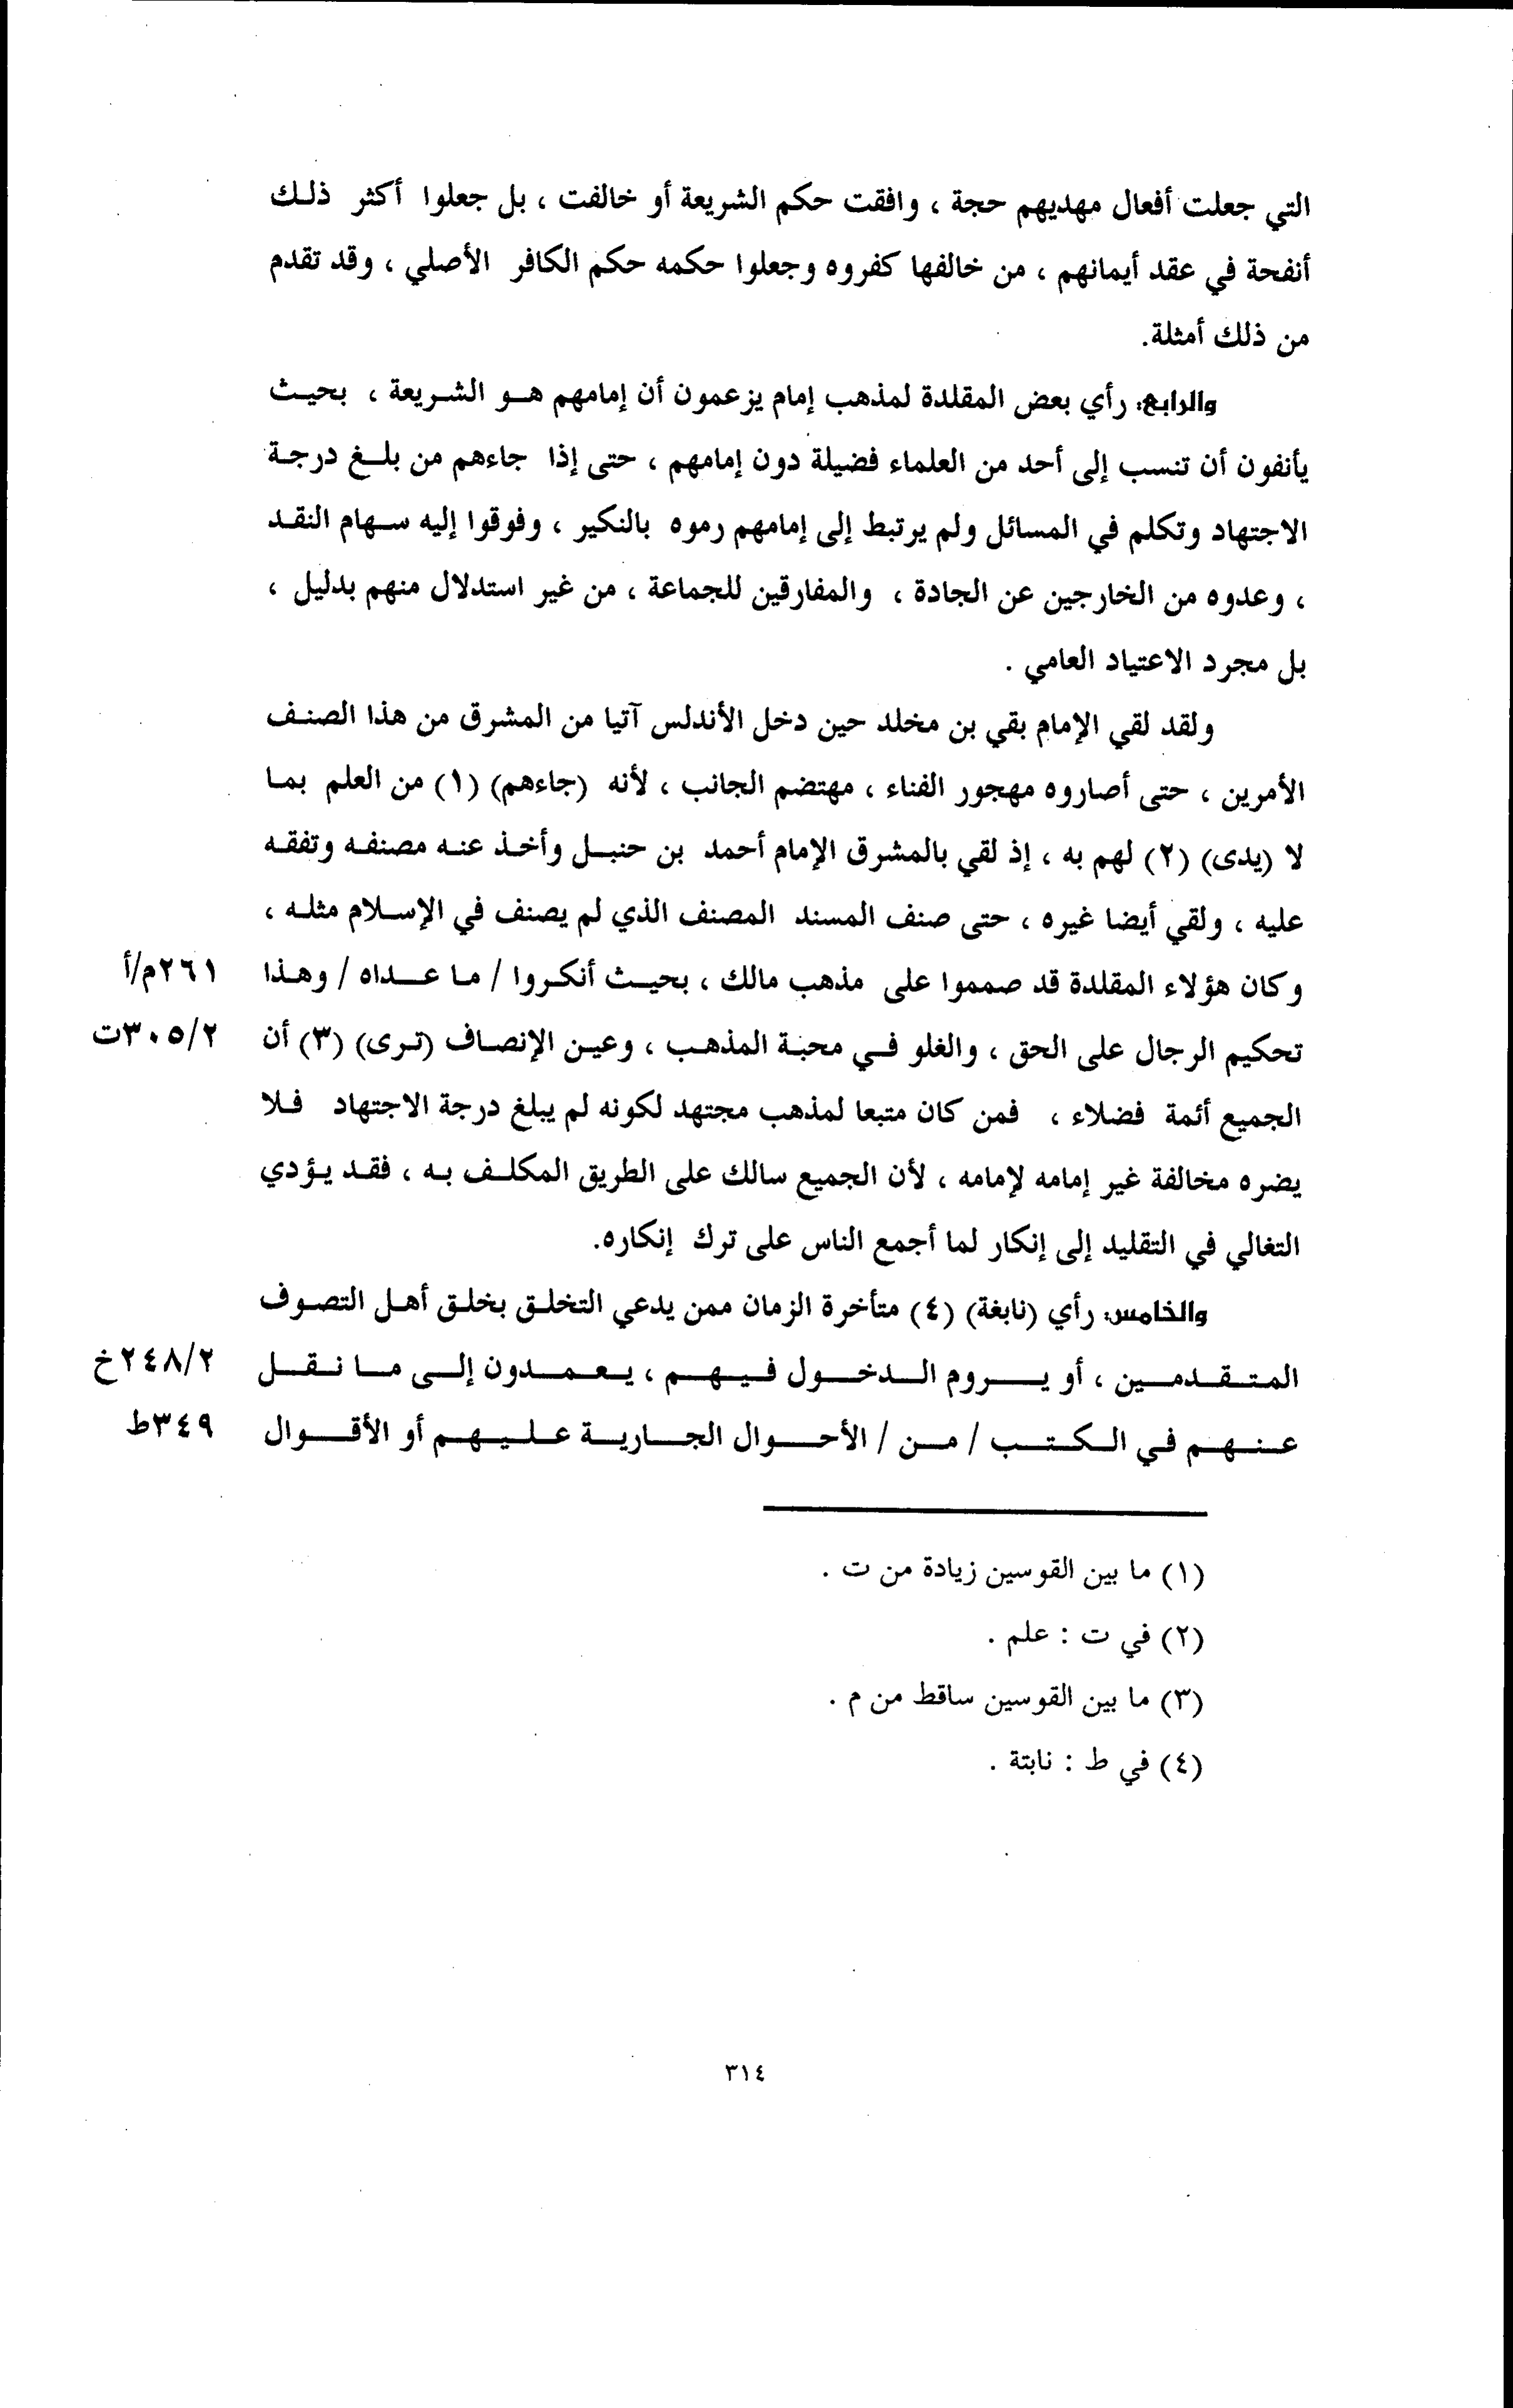 التي جعلت أفعال مهديهم حجة ، وافقت حكم الشريعة أو خالفت ، بل جعلوا أكثر ذلك
أنفحة في عقد أيمانهم ، من خالفها كفروه وجعلوا حكمه حكم الكافر الأصلي ، وقد تقدم
من ذلك أمثلة.
والرابع: رأي بعض المقلدة لمذهب إمام يزعمون أن إمامهم هو الشريعة ، بحيث
يأنفون أن تنسب إلى أحد من العلماء فضيلة دون إمامهم ، حتى إذا جاءهم من بلغ درجة
الاجتهاد وتكلم في المسائل ولم يرتبط إلى إمامهم رموه بالنكير ، وفوقوا إليه سهام النقد
، وعدوه من الخارجين عن الجادة ، والمفارقين للجماعة ، من غير استدلال منهم بدليل ،
بل مجرد الاعتياد العامي .
ولقد لقي الإمام بقي بن مخلد حين دخل الأندلس آتيا من المشرق من هذا الصنف
الأمرين ، حتى أصاروه مهجور الفناء ، مهتضم الجانب ، لأنه (جاءهم) (١) من العلم بما
لا (يدى) (٢) لهم به ، إذ لقي بالمشرق الإمام أحمد بن حنبل وأخذ عنه مصنفه وتفقه
عليه ، ولقي أيضا غيره ، حتى صنف المسند المصنف الذي لم يصنف في الإسلام مثله ،
وكان هؤلاء المقلدة قد صمموا على مذهب مالك ، بحيث أنكروا / ما عداه / وهذا ٢٦١م/أ
تحكيم الرجال على الحق ، والغلو في محبة المذهب ، وعين الإنصاف (ترى) (٣) أن ٣٠٥/٢ت
الجميع أئمة فضلاء ، فمن كان متبعا لمذهب مجتهد لكونه لم يبلغ درجة الاجتهاد فلا
يضره مخالفة غير إمامه لإمامه ، لأن الجميع سالك على الطريق المكلف به ، فقد يؤدي
التغالي في التقليد إلى إنكار لما أجمع الناس على ترك إنكاره.
والخامس: رأي (نابغة) (٤) متأخرة الزمان ممن يدعي التخلق بخلق أهل التصوف
المتقدمين ، أو يروم الدخول فيهم ، يعمدون إلى ما نقل ٢٤٨/٢خ
عنهم في الكتب / من / الأحوال الجارية عليهم أو الأقوال ٣٤٩ط
(١) ما بين القوسين زيادة من ت .
(٢) في ت : علم .
(٣) ما بين القوسين ساقط من م .
(٤) في ط : نابتة .
٣١٤